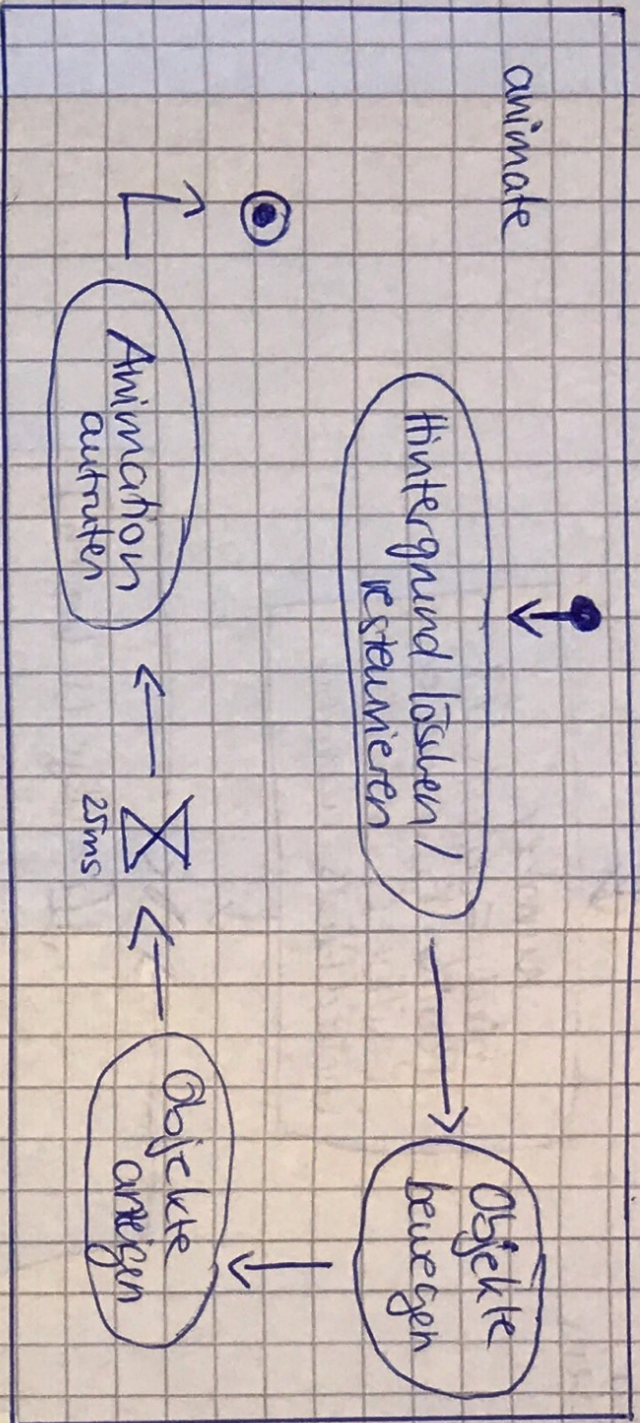 animate
Hintergrund löschen /
restaurieren
Objekte
bewegen
Objekte
anzeigen
25ms
Animation
aufrufen